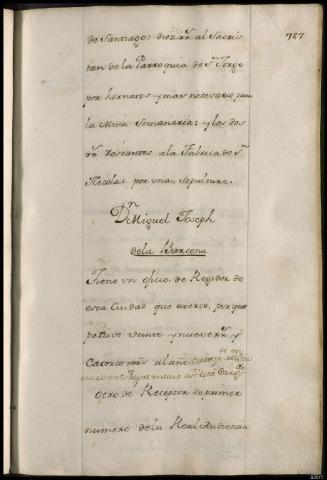 de Santiago: diez rr.s al Sacris
767
tan de la Parroquia de Sn. Jorge
por hornatos y mas necesario para
la Misa Semanaria; y los dos
rr.s restantes a la Fabrica de Sn.
Nicolas, por una Sepultura.
Dn. Miguel Joseph
de la Barcena
Tiene un oficio de Regidor de
esta Ciudad que exerce, porque
percive veinte y nueve rr.s y
Catorce mrs. al año
Otro de Receptor de primer
numero de la Real Audiencia